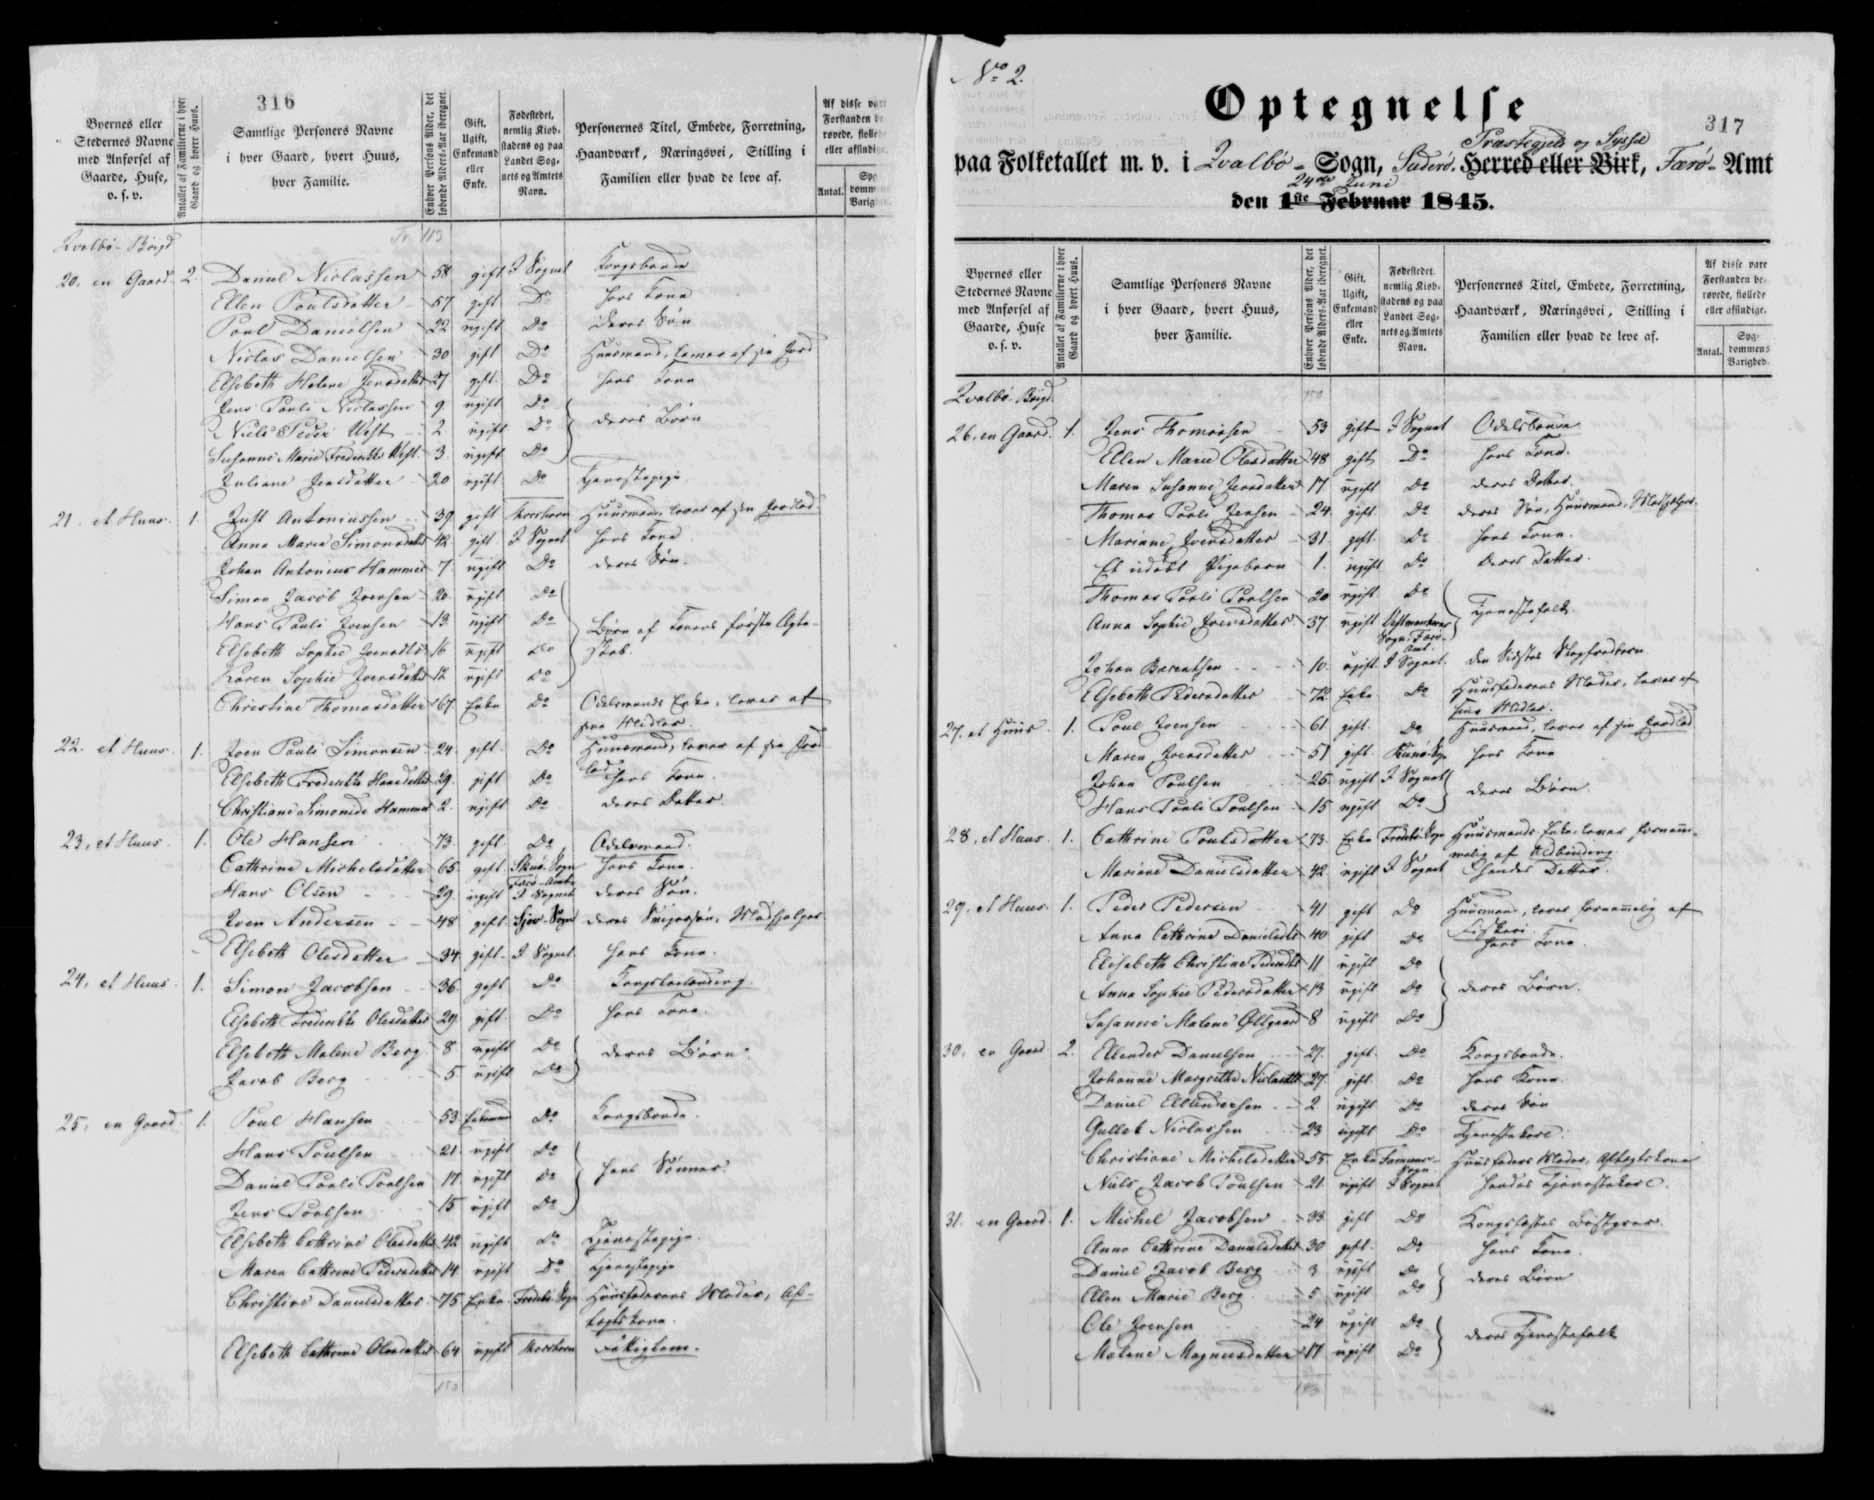 316
Byernes eller Stedernes Navne med Anførsel af Gaarde, Huse, o. s. v.
Antallet af Familierne i hver Gaard og hvert Huus.
Samtlige Personers Navne i hver Gaard, hvert Huus, hver Familie.
Enhver Persons Alder, det løbende Alders-Aar iberegnet.
Gift, Ugift, Enkemand eller Enke.
Fødestedet, nemlig Kiøbstadens og paa Landet Sognets og Amtets Navn.
Personernes Titel, Embede, Forretning, Haandværk, Næringsvei, Stilling i Familien eller hvad de leve af.
Antal.
Qvalbø-Bøigd
20. en Gaard. 2. Daniel Niclassen 58 gift I Sognet Kongsbonde
Ellen Poulsdatter 57 gift Do hans Kone
Poul Danielsen 22 ugift Do deres Søn
Niclas Danielsen 30 gift Do Huusmand, lever af sin Jord
Elsebeth Helene Jensdatter 27 gift Do hans Kone
Jens Pauli Niclassen 9 ugift Do
Niels Peder West 2 ugift Do deres Børn
Susanne Marie Frederikke West 3 ugift Do
Juliane Jensdatter 20 ugift Do Tjenestepige
21. et Huus. 1. Just Antoniussen 39 gift Thorshavn Huusmand, lever af sin Jordlod
Anna Maria Simonsdatter 42 gift I Sognet hans Kone
Johan Antonius Hammer 7 ugift Do deres Søn.
Simon Jacob Joensen 20 ugift Do
Hans Pauli Joensen 13 ugift Do Børn af Konens første Ægteskab.
Elsebeth Sophie Joensdtr 16 ugift Do
Karen Sophie Joensdatter 12 ugift Do
Christine Thomasdatter 67 Enke Do Odelsmands Enke, lever af sine Midler.
22. et Huus. 1. Joen Pauli Simonsen 24 gift Do Huusmand, lever af sin Jordlod
Elsebeth Frederikke Hansdatter 29 gift Do hans Kone.
Christiane Simonide Hammer 2 ugift Do deres Datter.
23. et Huus. 1. Ole Hansen 73 gift Do Odelsmand.
Cathrine Michelsdatter 65 gift Skuø-Sogn Færø-Amt hans Kone.
Hans Olsen 29 ugift I Sognet deres Søn.
Joen Andersen 48 gift Sjov-Sogn deres Svigersøn, Medhjelper.
Elsebeth Olesdatter 34 gift I Sognet. hans Kone.
24. et Huus. 1. Simon Jacobsen 36 gift Do
Elsebeth Frederikke Olesdatter 29 gift Do hans Kone.
Elsebeth Malene Berg 8 ugift Do deres Børn.
Jacob Berg 5 ugift Do
25. en Gaard. 1. Poul Hansen 53 Enkemand Do Kongsbonde.
Hans Poulsen 21 ugift Do
Daniel Pauli Poulsen 17 ugift Do hans Sønner
Jens Poulsen 15 ugift Do
Elsebeth Cathrine Olesdatter 42 ugift Do Tjenestepige.
Maren Cathrine Pedersdatter 14 ugift Do Tjenestepige
Christine Danielsdatter 75 Enke Huusfaderens Moder, Aftægtskone.
Elsebeth Cathrine Olesdatter 64 ugift Thorshavn Fattiglem.
No 2.
317
Optegnelse
paa Folketallet m. v. i Qvalbø- Sogn, Suderø. Herred eller Birk, Præstegjeld og Syssel Færø- Amt
den 1ste Februar 24de Juni 1845.
Byernes eller Stedernes Navne med Anførsel af Gaarde, Huse o. s. v.
Antallet af Familierne i hver Gaard og hvert Huus.
Samtlige Personers Navne i hver Gaard, hvert Huus, hver Familie.
Enhver Persons Alder, det løbende Alders-Aar iberegnet.
Gift, Ugift, Enkemand eller Enke.
Fødestedet, nemlig Kiøbstadens og paa Landet Sognets og Amtets Navn.
Personernes Titel, Embede, Forretning, Haandværk, Næringsvei, Stilling i Familien eller hvad de leve af.
Af disse vare Forstanden berøvede, fiollede eller afsindige.
Antal.
Sygdommens Varighed.
Qvalbø-Bøigd.
26. en Gaard. 1. Jens Thomassen 53 gift I Sognet Odelsbonde
Ellen Marie Olesdatter 48 gift Do hans Kone.
Maren Susanne Jensdatter 17 ugift Do deres Datter.
Thomas Pauli Jensen 24 gift Do deres Søn, Huusmand, Medhjelper.
Mariane Joensdatter 31 gift Do hans Kone.
Et udøbt Pigebarn 1 ugift Do deres Datter.
Thomas Pauli Poulsen 20 ugift Do Tjenestefolk
Anna Sophie Joensdatter 37 ugift Vestmanhavns Sogn, Færø-Amt.
Johan Berentsen 10 ugift I Sognet.
Elsebeth Pedersdatter 72 Enke Do Huusfaderens Moder, lever af sine Midler.
27. et Huus 1. Poul Joensen 61 gift Do Huusmand, lever af sin Jordlod
Maren Joensdatter 51 gift Kunø-Sogn hans Kone
Johan Poulsen 25 ugift I Sognet deres Børn.
Hans Pauli Poulsen 15 ugift Do
28. et Huus. 1. Cathrine Poulsdatter 73 Enke Huusmands Enke lever fornemmelig af Uldbinding
Mariane Danielsdatter 42 ugift I Sognet hendes Datter.
29. et Huus. 1. Peder Pedersen 41 gift Do Huusmand, lever fornemmelig af Fiskeri
Anna Cathrine Danielsdtr 40 gift Do hans Kone.
Elisabeth Christine Pedersdtr 11 ugift Do
Anna Sophie Pedersdatter 13 ugift Do deres Børn.
Susanne Malene Øllgaard 8 ugift Do
30. en Gaard. 2. Ellendes Danielsen 27 gift Do Kongsbonde.
Johanne Margrethe Niclasdtr 27 gift Do hans Kone
Daniel Ellendersen 2 ugift Do deres Søn
Gullek Niclassen 23 ugift Do Tjenestekarl.
Christiane Michelsdatter 55 Enke Famiens-Sogn Huusfaders Moder, Aftægtskone
Niels Jacob Poulsen 21 ugift I Sognet hendes Tjenestekarl.
31. en Gaard. 1. Michel Jacobsen 33 gift Do
Anna Cathrine Danielsdatter 30 gift Do hans Kone.
Daniel Jacob Berg 3 ugift Do deres Børn
Ellen Marie Berg 5 ugift Do
Ole Joensen 24 ugift Do deres Tjenestefolk
Malene Magnusdatter 17 ugift Do